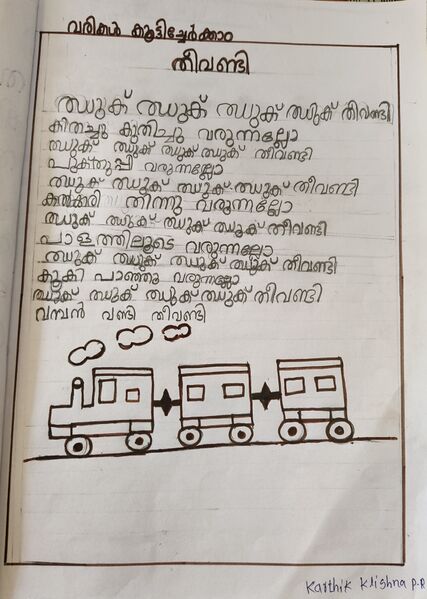 വരികൾ കൂട്ടിച്ചേർക്കാം
തീവണ്ടി
ഝുക് ഝുക് ഝുക് ഝുക് തീവണ്ടി
കിതച്ചു കുതിച്ചു വരുന്നല്ലോ
ഝുക് ഝുക് ഝുക് ഝുക് തീവണ്ടി
പുകതുപ്പി വരുന്നല്ലോ
ഝുക് ഝുക് ഝുക് ഝുക് തീവണ്ടി
കൽക്കരി തിന്നു വരുന്നല്ലോ
ഝുക് ഝുക് ഝുക് ഝുക് തീവണ്ടി
പാളത്തിലൂടെ വരുന്നല്ലോ
ഝുക് ഝുക് ഝുക് ഝുക് തീവണ്ടി
കൂകി പാഞ്ഞു വരുന്നല്ലോ
ഝുക് ഝുക് ഝുക് ഝുക് തീവണ്ടി
വമ്പൻ വണ്ടി തീവണ്ടി
Karthik Klishna P.R